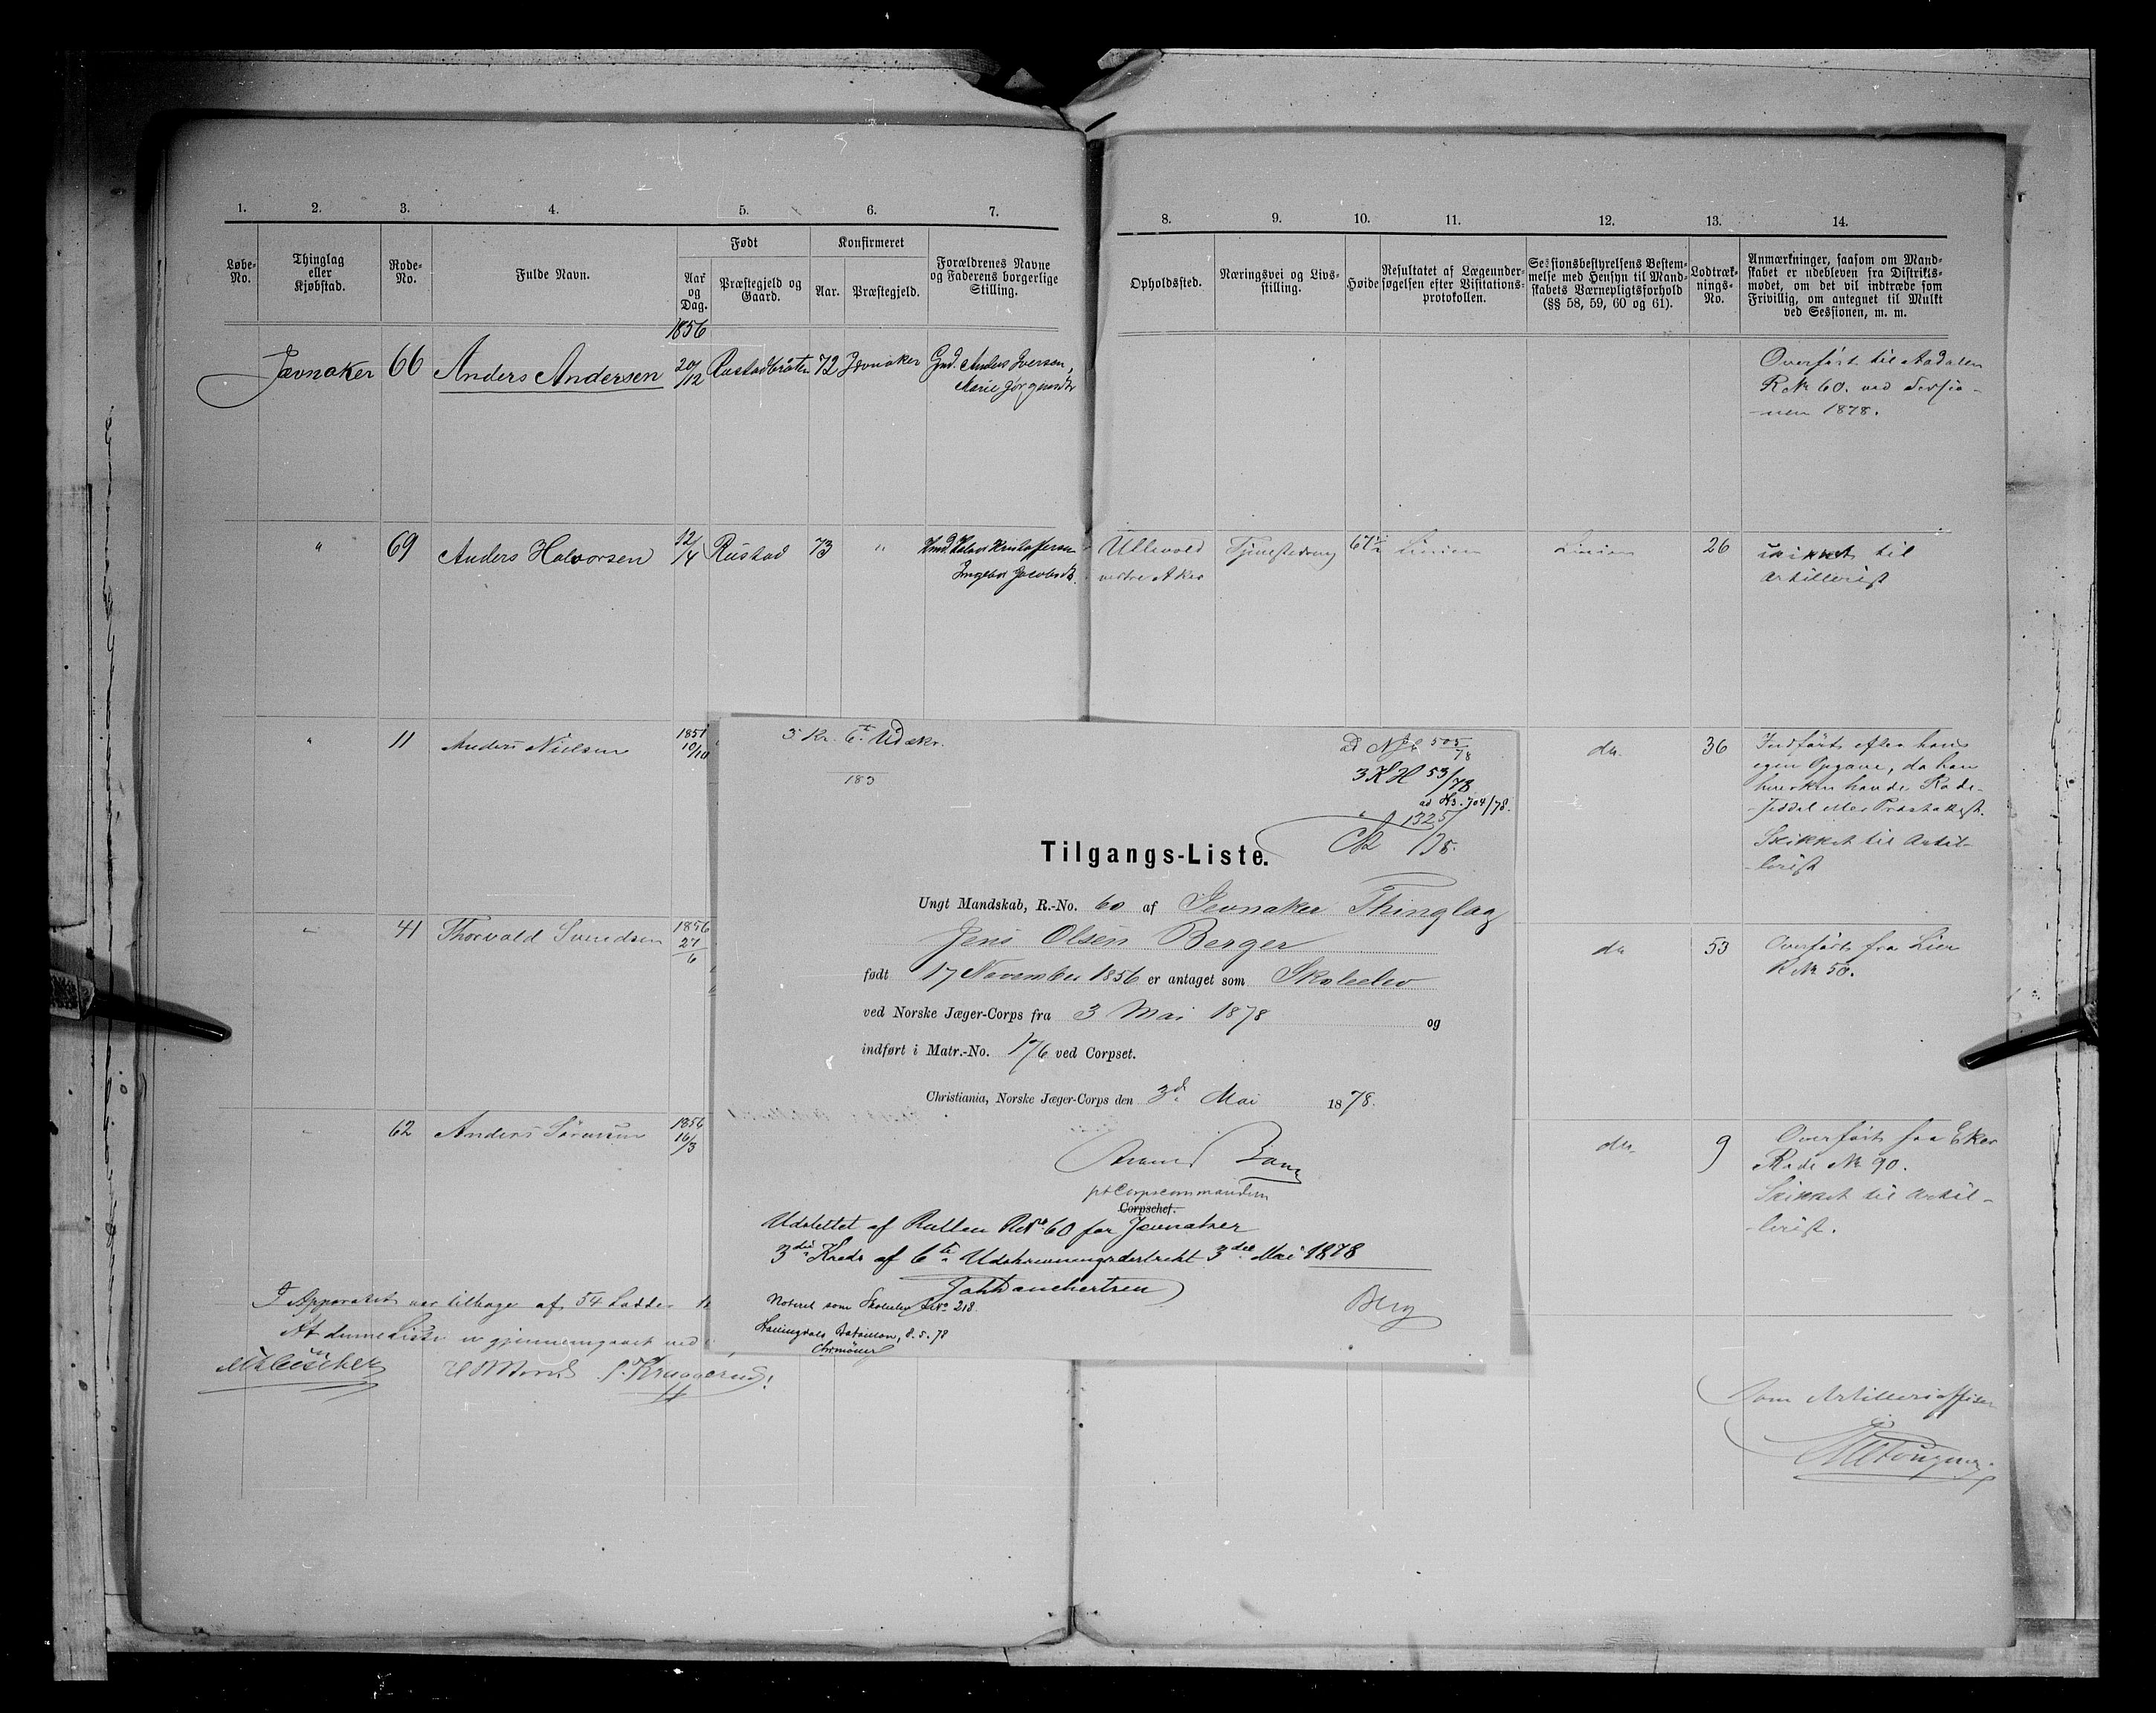 1. 2. 3. 4. 5. 6. 7.
Løbe-No.
Thinglag eller Kjøbstad.
Rode-No.
Fulde Navn.
Født
Aar og Dag.
Præstegjeld og Gaard.
Konfirmeret
Aar.
Præstegjeld.
Forældrenes Navne og Faderens borgerlige Stilling.
1856
Jævnaker 66 Anders Andersen 20/12 Rustadbråten 72 Jevnaker Gmd. Anders Iversen,
Marie Jørgensdr
" 69 Anders Halvorsen 12/14 Rustad 73 " Hmd. Halvor Kristoffersen
Ingebor Jacobsdr.
" 11 Anders Nielsen 1851 10/10
" 41 Thorvald Svendsen 1856 27/6
" 62 Anders Sørensen 1856 16/3
I Apparatet var tilbage af 54 Lodder
At denne Liste er gjennemgaaet ved
8. 9. 10. 11. 12. 13. 14.
Opholdssted.
Næringsvei og Livsstilling.
Høide
Resultatet af Lægeundersøgelsen efter Visitationsprotokollen.
Sessionsbestyrelsens Bestemmelse med Hensyn til Mandskabets Værnepligtsforhold (§§ 58, 59, 60 og 61).
Lodtræknings-No.
Anmærkninger, saasom om Mandskabet er udebleven fra Distriktsmødet, om det vil indtræde som Frivillig, om antegnet til Mulkt ved Sessionen, m. m.
Overført til Aadalen
R No 60. ved Sessio-
-nen 1878.
Ullevold Tjenestedreng 67½ Linien Linien 26 skikket til
vestre Aker Artillerist
do. 36 Indført efter hans
egen Opgave, da han
hverken havde Rode-
-seddel eller Præsteattest.
Skikket til Artil-
-lerist
do 53 Overført fra Lier
R No 50.
do. 9 Overført fra Eker
Rode No 90.
Skikket til Artil-
-lerist.
Som Artilleriofficer
3. Kr. 6te Udskr.
183
ad 505/78
3 K H 53/78
ad 704/78.
1325/78.
Tilgangs-Liste.
Ungt Mandskab, R.-No. 60 af Jevnaker Thinglag
Jens Olsen Berger
født 17 November 1856 er antaget som Skoleelev
ved Norske Jæger-Corps fra 3 Mai 1878 og
indført i Matr.-No. 176 ved Corpset.
Christiania, Norske Jæger-Corps den 3d. Mai 1878.
pt Corpscommandeur
Corpschef.
Udslettet af Rullen R No 60 for Jævnaker
3die Kreds af 6te Udskrivningsdistrikt 3die Mai 1878
Noteret som Skoleelev No 218.
Berg
Hallingdals Bataillon, 8.5.78